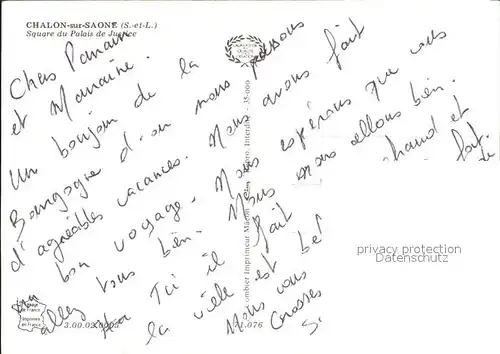 CHALON-sur-SAONE (S.-et-L.)
Square du Palais de Justice
Chers Parrain
et Marraine.
Un bonjour de la
Bourgogne d'où nous passons
d'agréables vacances. Nous avons fait
bon voyage. Nous espérons que vous
allez tous bien. Nous nous allons bien.
Ici il fait chaud et
la ville est belle fait.
Nous vous
Grosses
Combier Imprimeur Mâcon
Interdite - 35-000
Imprimée
en France
3.00.02.0003
71.076
privacy protection
Datenschutz